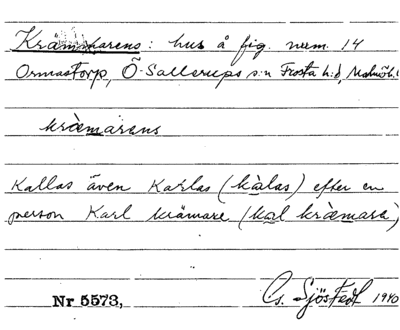 Krämarens: hus å fig. num. 14
Ormastorp, Ö. Sallerups s:n Frosta h:d, Malmöh. l.
kràemarens
Kallas även Karlas (kàlas) efter en
person Karl krämare (kal kràemara)
Nr 5573,
Cs. Sjöstedt 1940